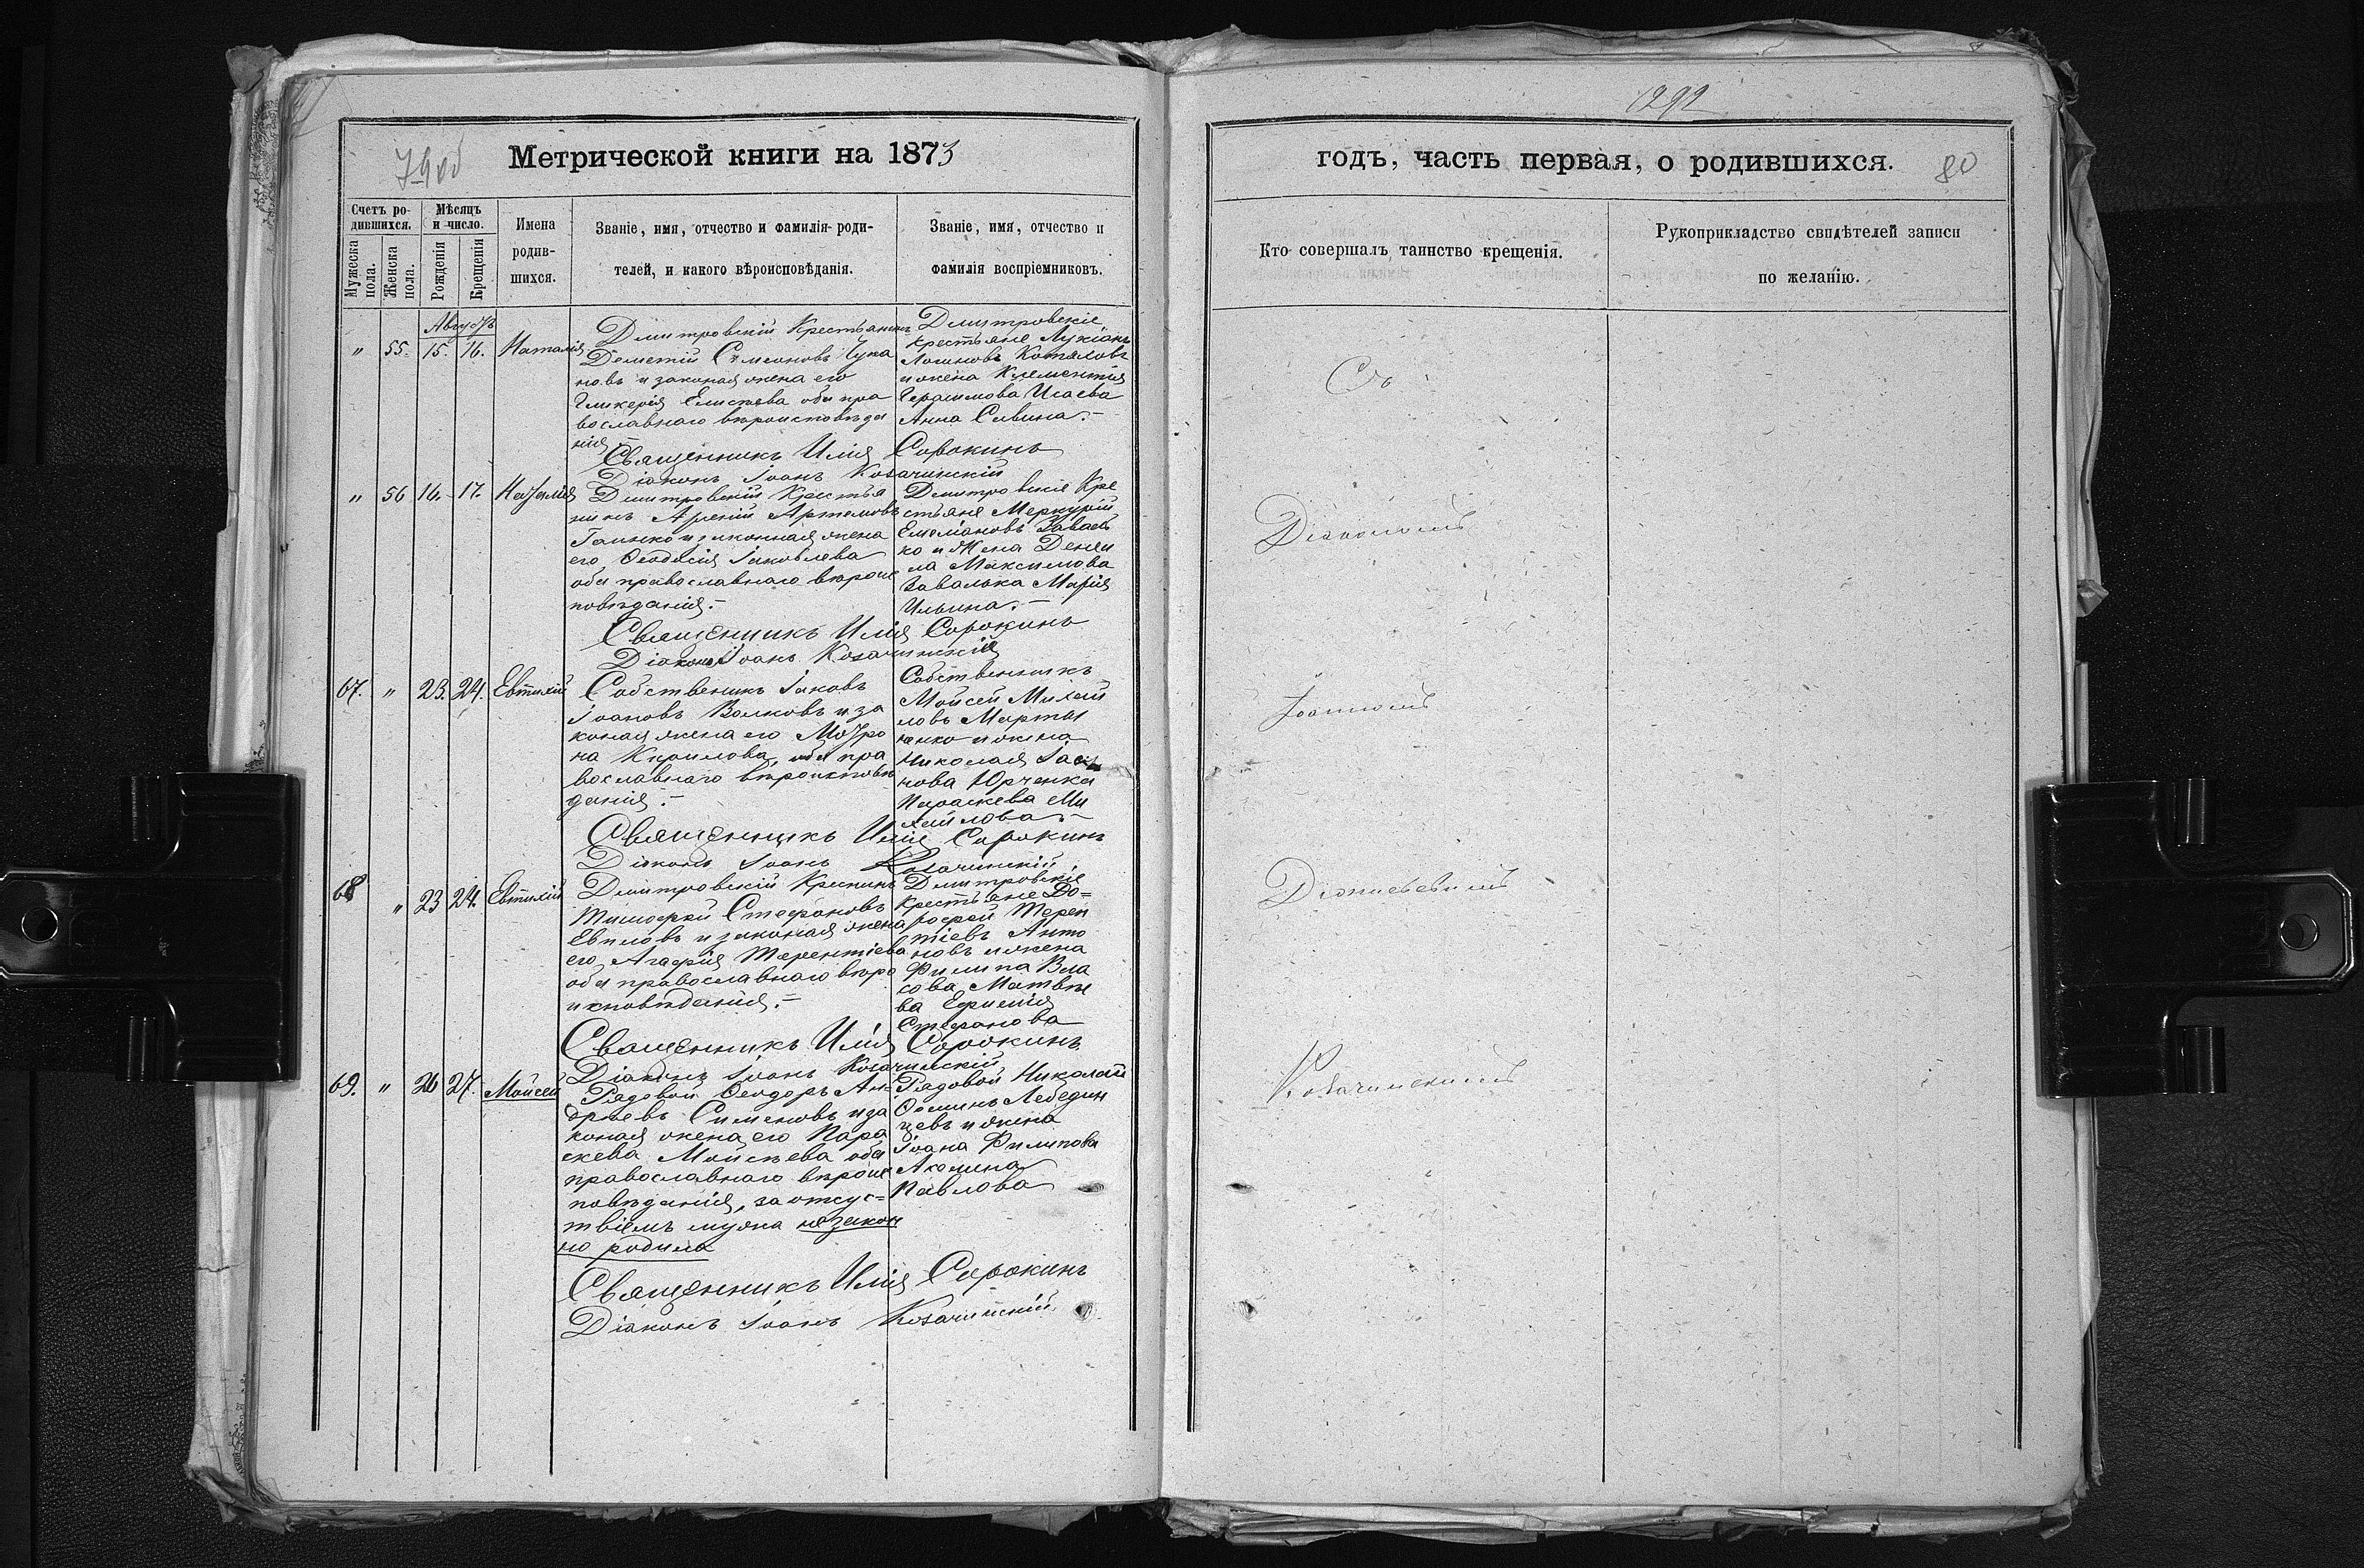 79 об
Метрической книги на 1873
Счетъ ро-
дившихся.
Мужеска пола.
Женска пола.
Мѣсяцъ
и число.
Рожденія
Крещенія
Имена
родив-
шихся.
Званіе, имя, отчество и фамилія роди-
телей, и какого вѣроисповѣданія.
Званіе, имя, отчество и
фамилія воспріемниковъ.
Августъ
" 55. 15. 16. Наталія
Дмитровскій Крестьянинъ
Дометій Симеоновъ Чука
новъ и законая жена его
Гликерія Елисѣева оба пра
вославнаго вѣроисповѣда
нія.-
Дмитровскіе
крестьяне Лукіанъ
Логиновъ Котляровъ
и жена Климентія
Герасимова Исаева
Анна Савина.-
Священникъ Илія Сорокинъ
Діаконъ Іоанъ Козачинскій
" 56 16. 17. Наталія
Дмитровскій Крестья
нинъ Арсеній Артемовъ
Ганжа и законная жена
его Ѳеодосія Іаковлева
оба православнаго вѣроис
повѣданія.-
Дмитровскіе Кре
стьяне Меркурій
Емеліановъ Заваль
ко и Жена Дані
ла Максимова
Завалька Марія
Ильина.-
Священникъ Илія Сорокинъ
Діаконъ Іоанъ Козачинскій
67. " 23. 24. Евтихій
Собственикъ Іаковъ
Іоановъ Волковъ и за
коная жена его Мотро
на Кирилова, оба пра
вославнаго вѣроисповѣ
данія.-
Собственникъ
Мойсей Михай
ловъ Марты
ненко и жена
Николая
нова Юрченка
Параскева Ми
хайлова.-
Священникъ Илія Сорокинъ
Діаконъ Іоанъ Козачинскій
68 " 23 24. Евтихій
Дмитровскій Крестьянинъ
Тимофей Стефановъ
Евиловъ и законая жена
его Агафія Терентіева
оба православнаго вѣро
исповѣданія.-
Дмитровскіе
Крестьяне До=
рофей Терен
тіевъ Анто
новъ и жена
Филипа Вла
сова Матвѣе
ва Ефимія
Стефанова
Священникъ Илія Сорокинъ
Діаконъ Іоанъ Козачинскій
69. " 26 27. Мойсей
Рядовой Ѳеодоръ Ан-
дреевъ Сименовъ и за
коная жена его Пара
скева Мойсѣева оба
православнаго вѣроис
повѣданія, за отсус=
твіемъ мужа незакон
но родила
Рядовой Николай
Ѳоминъ Лебедин
цевъ и жена
Іоана Филипова
Акелина
Павлова
Священникъ Илія Сорокинъ
Діаконъ Іоанъ Козачинскій
1292
годъ, часть первая, о родившихся. 80
Кто совершалъ таинство крещенія.
Рукоприкладство свидѣтелей записи
по желанію.
Съ
Діакономъ
Іоанномъ
Козачинскимъ